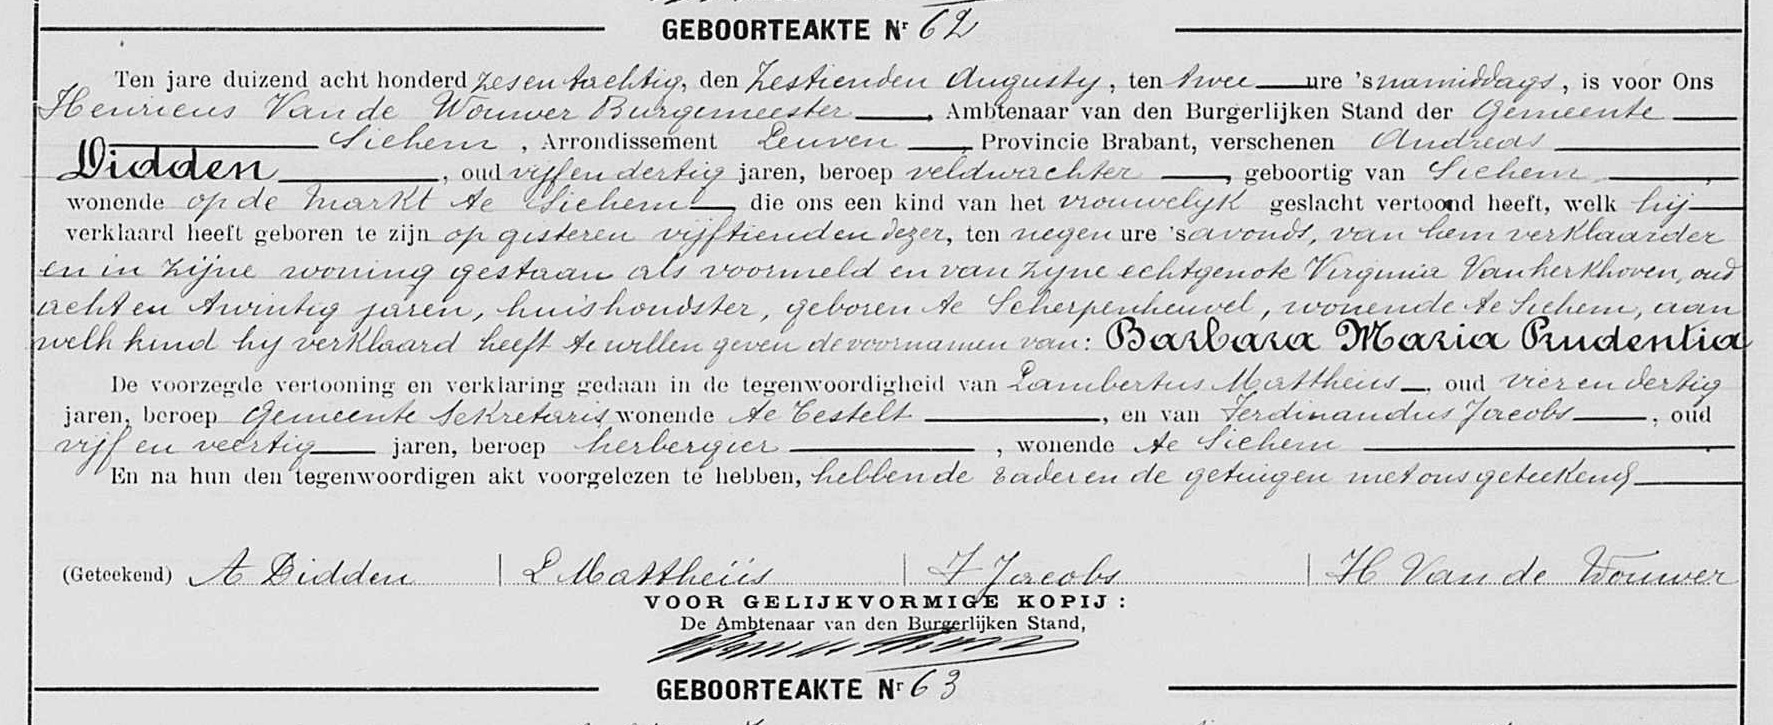 GEBOORTEAKTE Nr 62
Ten jare duizend acht honderd zesentachtig, den zestienden Augusty, ten twee ure 's namiddags, is voor Ons
Henricus Van de Wouwer Burgemeester, Ambtenaar van den Burgerlijken Stand der Gemeente
Sichem, Arrondissement Leuven, Provincie Brabant, verschenen Andreas
Didden, oud vijfendertig jaren, beroep veldwachter, geboortig van Sichem,
wonende op de Markt te Sichem, die ons een kind van het vrouwelijk geslacht vertoond heeft, welk hij
verklaard heeft geboren te zijn op gisteren vijftienden dezer, ten negen ure 's avonds, van hem verklaarder
en in zijne woning gestaan als voormeld en van zyne echtgenote Virginia Vanherkhoven, oud
acht en twintig jaren, huishoudster, geboren te Scherpenheuvel, wonende te Sichem, aan
welk kind hy verklaard heeft te willen geven de voornamen van: Barbara Maria Prudentia
De voorzegde vertooning en verklaring gedaan in de tegenwoordigheid van Lambertus Mattheus, oud vier en dertig
jaren, beroep Gemeente Sekretaris, wonende te Testelt, en van Ferdinandus Jacobs, oud
vijf en veertig jaren, beroep herbergier, wonende te Sichem
En na hun den tegenwoordigen akt voorgelezen te hebben, hebben de vader en de getuigen met ons geteekend
(Geteekend) A Didden | L Mattheüs | F Jacobs | H Van de Wouwer
VOOR GELIJKVORMIGE KOPIJ :
De Ambtenaar van den Burgerlijken Stand,
GEBOORTEAKTE Nr 63